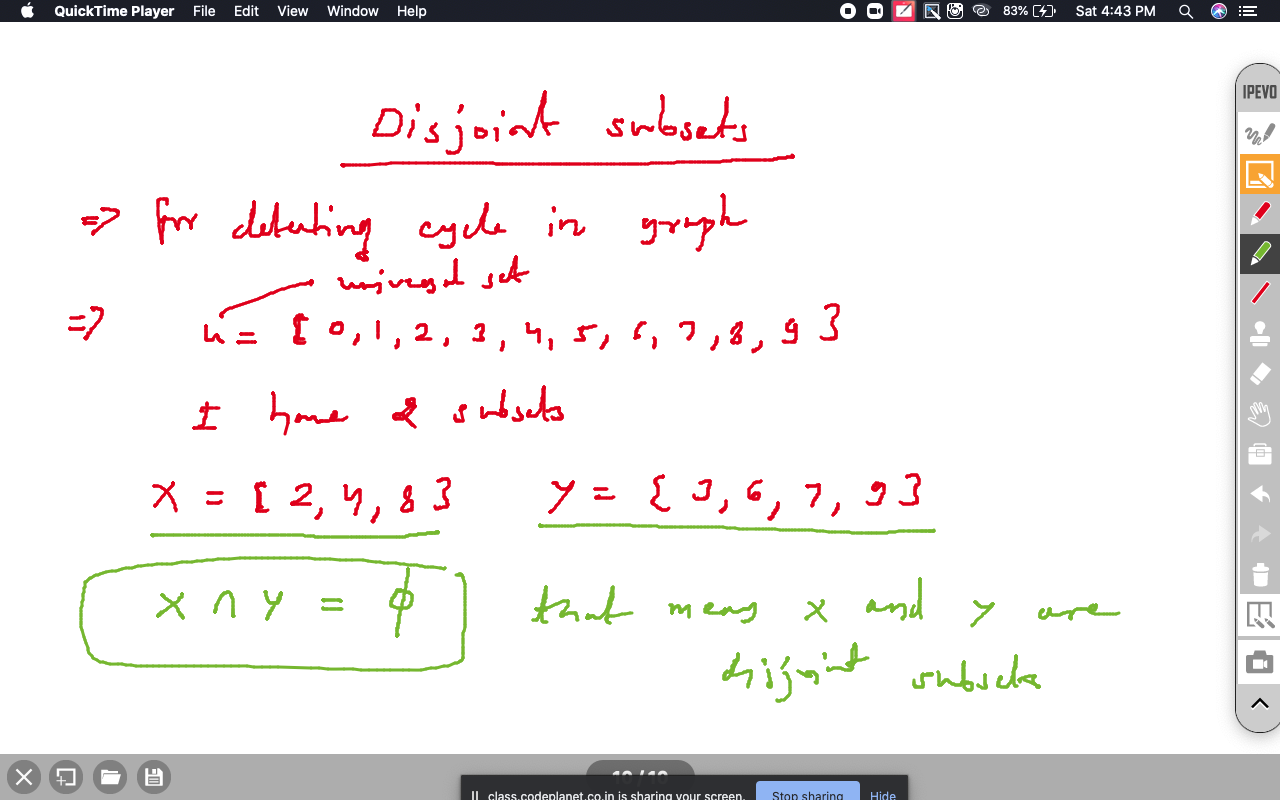 QuickTime Player File Edit View Window Help 83% Sat 4:43 PM
IPEVO
Disjoint subsets
=> for detecting cycle in graph
universal set
=> u = { 0, 1, 2, 3, 4, 5, 6, 7, 8, 9 }
I have 2 subsets
X = { 2, 4, 8 } Y = { 3, 6, 7, 9 }
X ∩ Y = ϕ that means X and Y are
disjoint subsets
10 / 10
class.codeplanet.co.in is sharing your screen. Stop sharing Hide